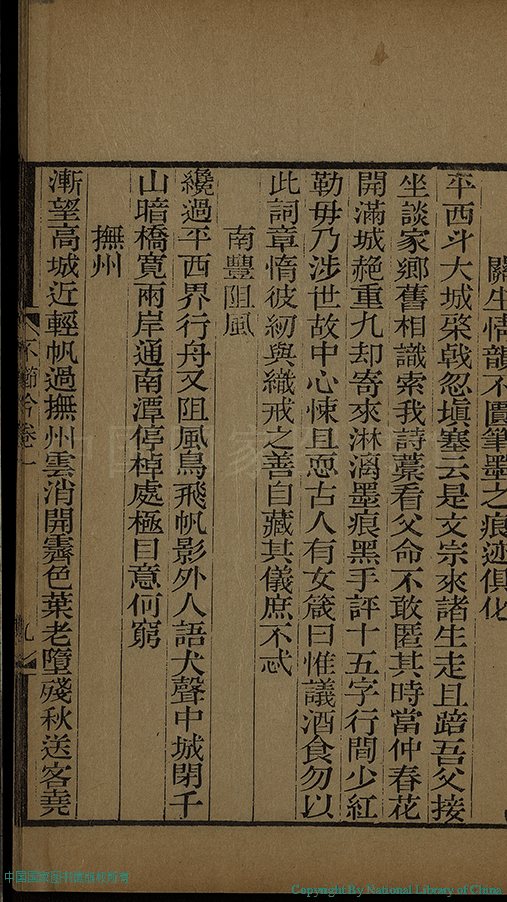 關生情韻不匱筆墨之痕迹俱化
平西斗大城棨戟忽塡塞云是文宗來諸生走且踣吾父接
坐談家鄉舊相識索我詩藁看父命不敢匿其時當仲春花
開滿城赩重九却寄來淋漓墨痕黑手評十五字行間少紅
勒毋乃涉世故中心悚且恧古人有女箴曰惟議酒食勿以
此詞章惰彼紉與織戒之善自藏其儀庶不忒
南豐阻風
纔過平西界行舟又阻風鳥飛帆影外人語犬聲中城閉千
山暗橋寬兩岸通南潭停棹處極目意何窮
撫州
漸望高城近輕帆過撫州雲消開霽色葉老墮殘秋送客堯
不櫛吟卷一
九
中国国家图书馆
Copyright By National Library of China